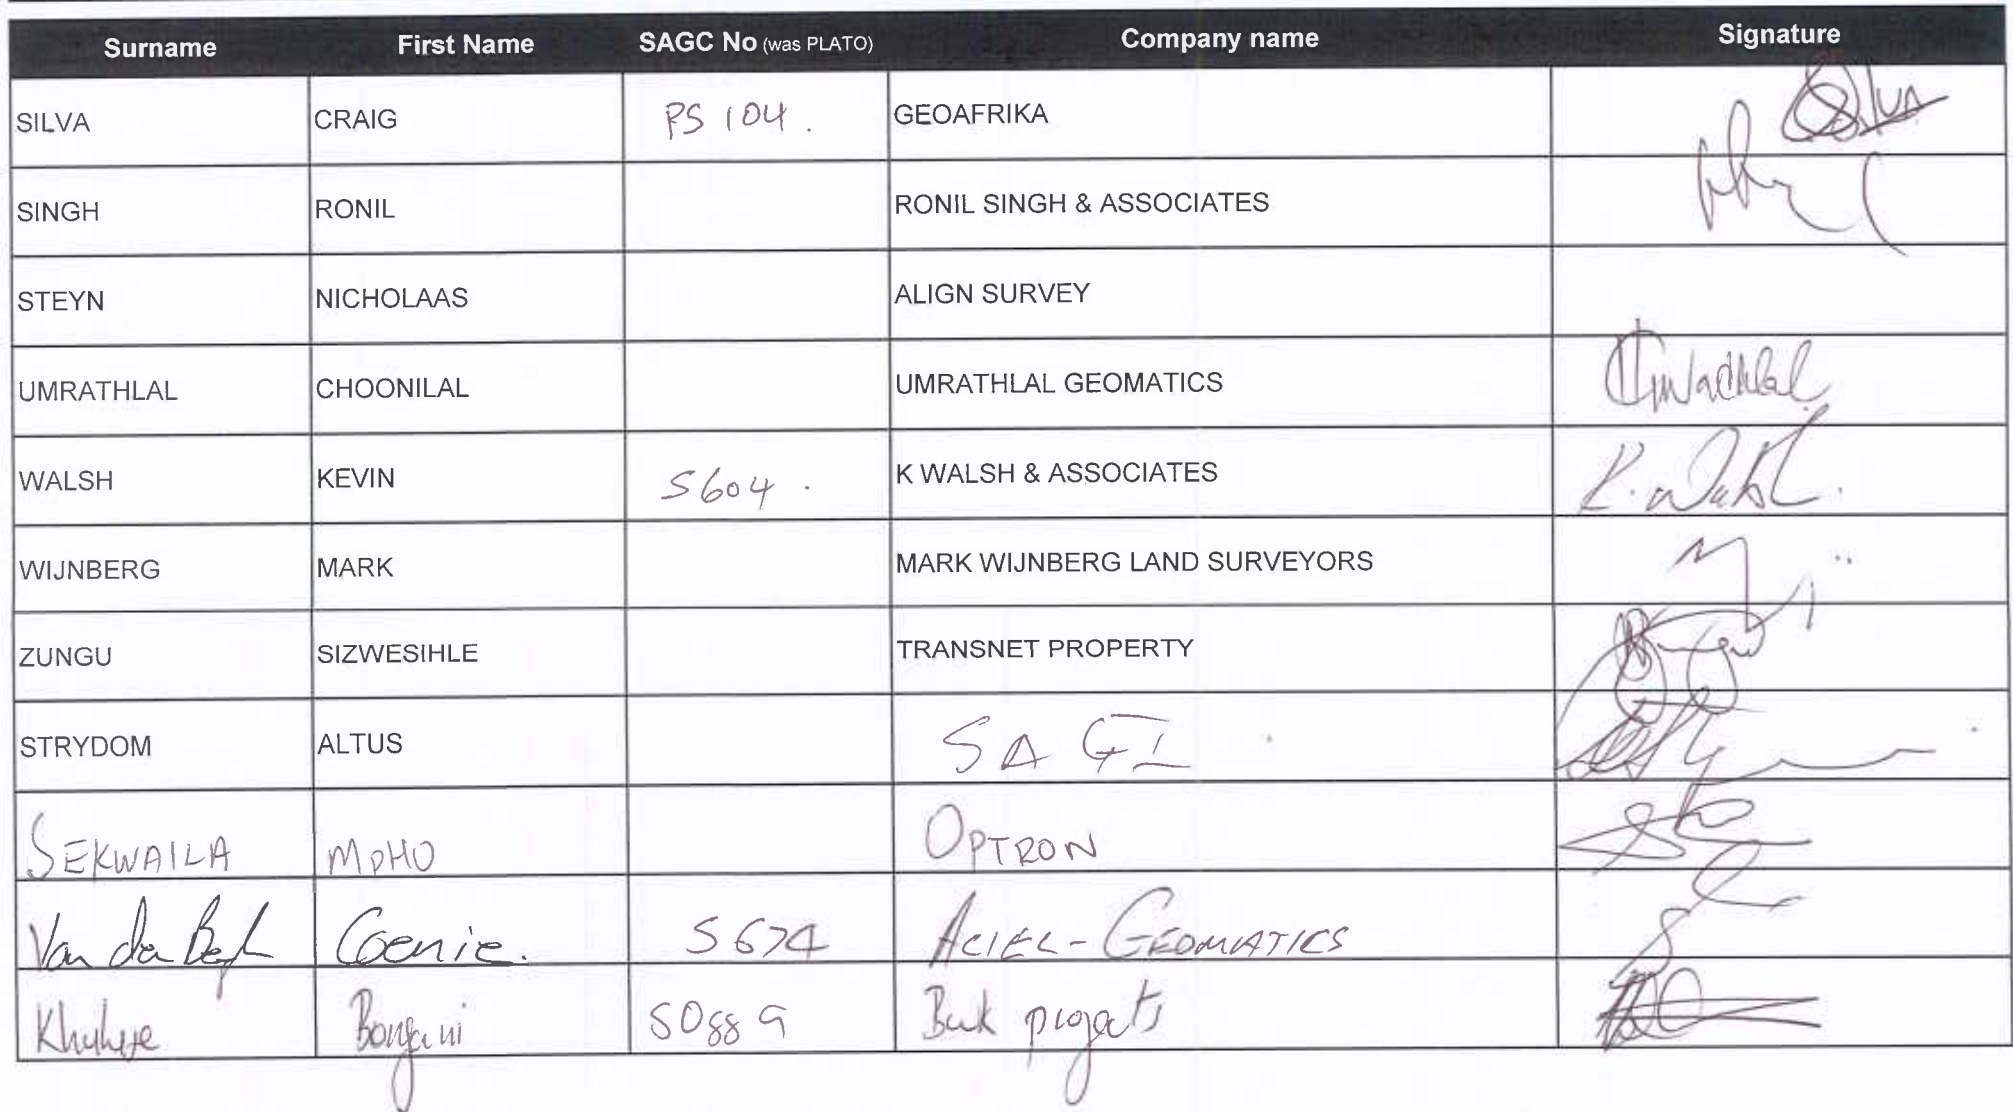 Surname First Name SAGC No (was PLATO) Company name Signature
SILVA CRAIG PS 104. GEOAFRIKA Silva
SINGH RONIL RONIL SINGH & ASSOCIATES
STEYN NICHOLAAS ALIGN SURVEY
UMRATHLAL CHOONILAL UMRATHLAL GEOMATICS
WALSH KEVIN S604. K WALSH & ASSOCIATES K. Walsh.
WIJNBERG MARK MARK WIJNBERG LAND SURVEYORS
ZUNGU SIZWESIHLE TRANSNET PROPERTY
STRYDOM ALTUS SAGI
SEKWAILA MPHO OPTRON
Van der Coenie. S674 ACIEL-GEOMATICS
Bongani Buk projects